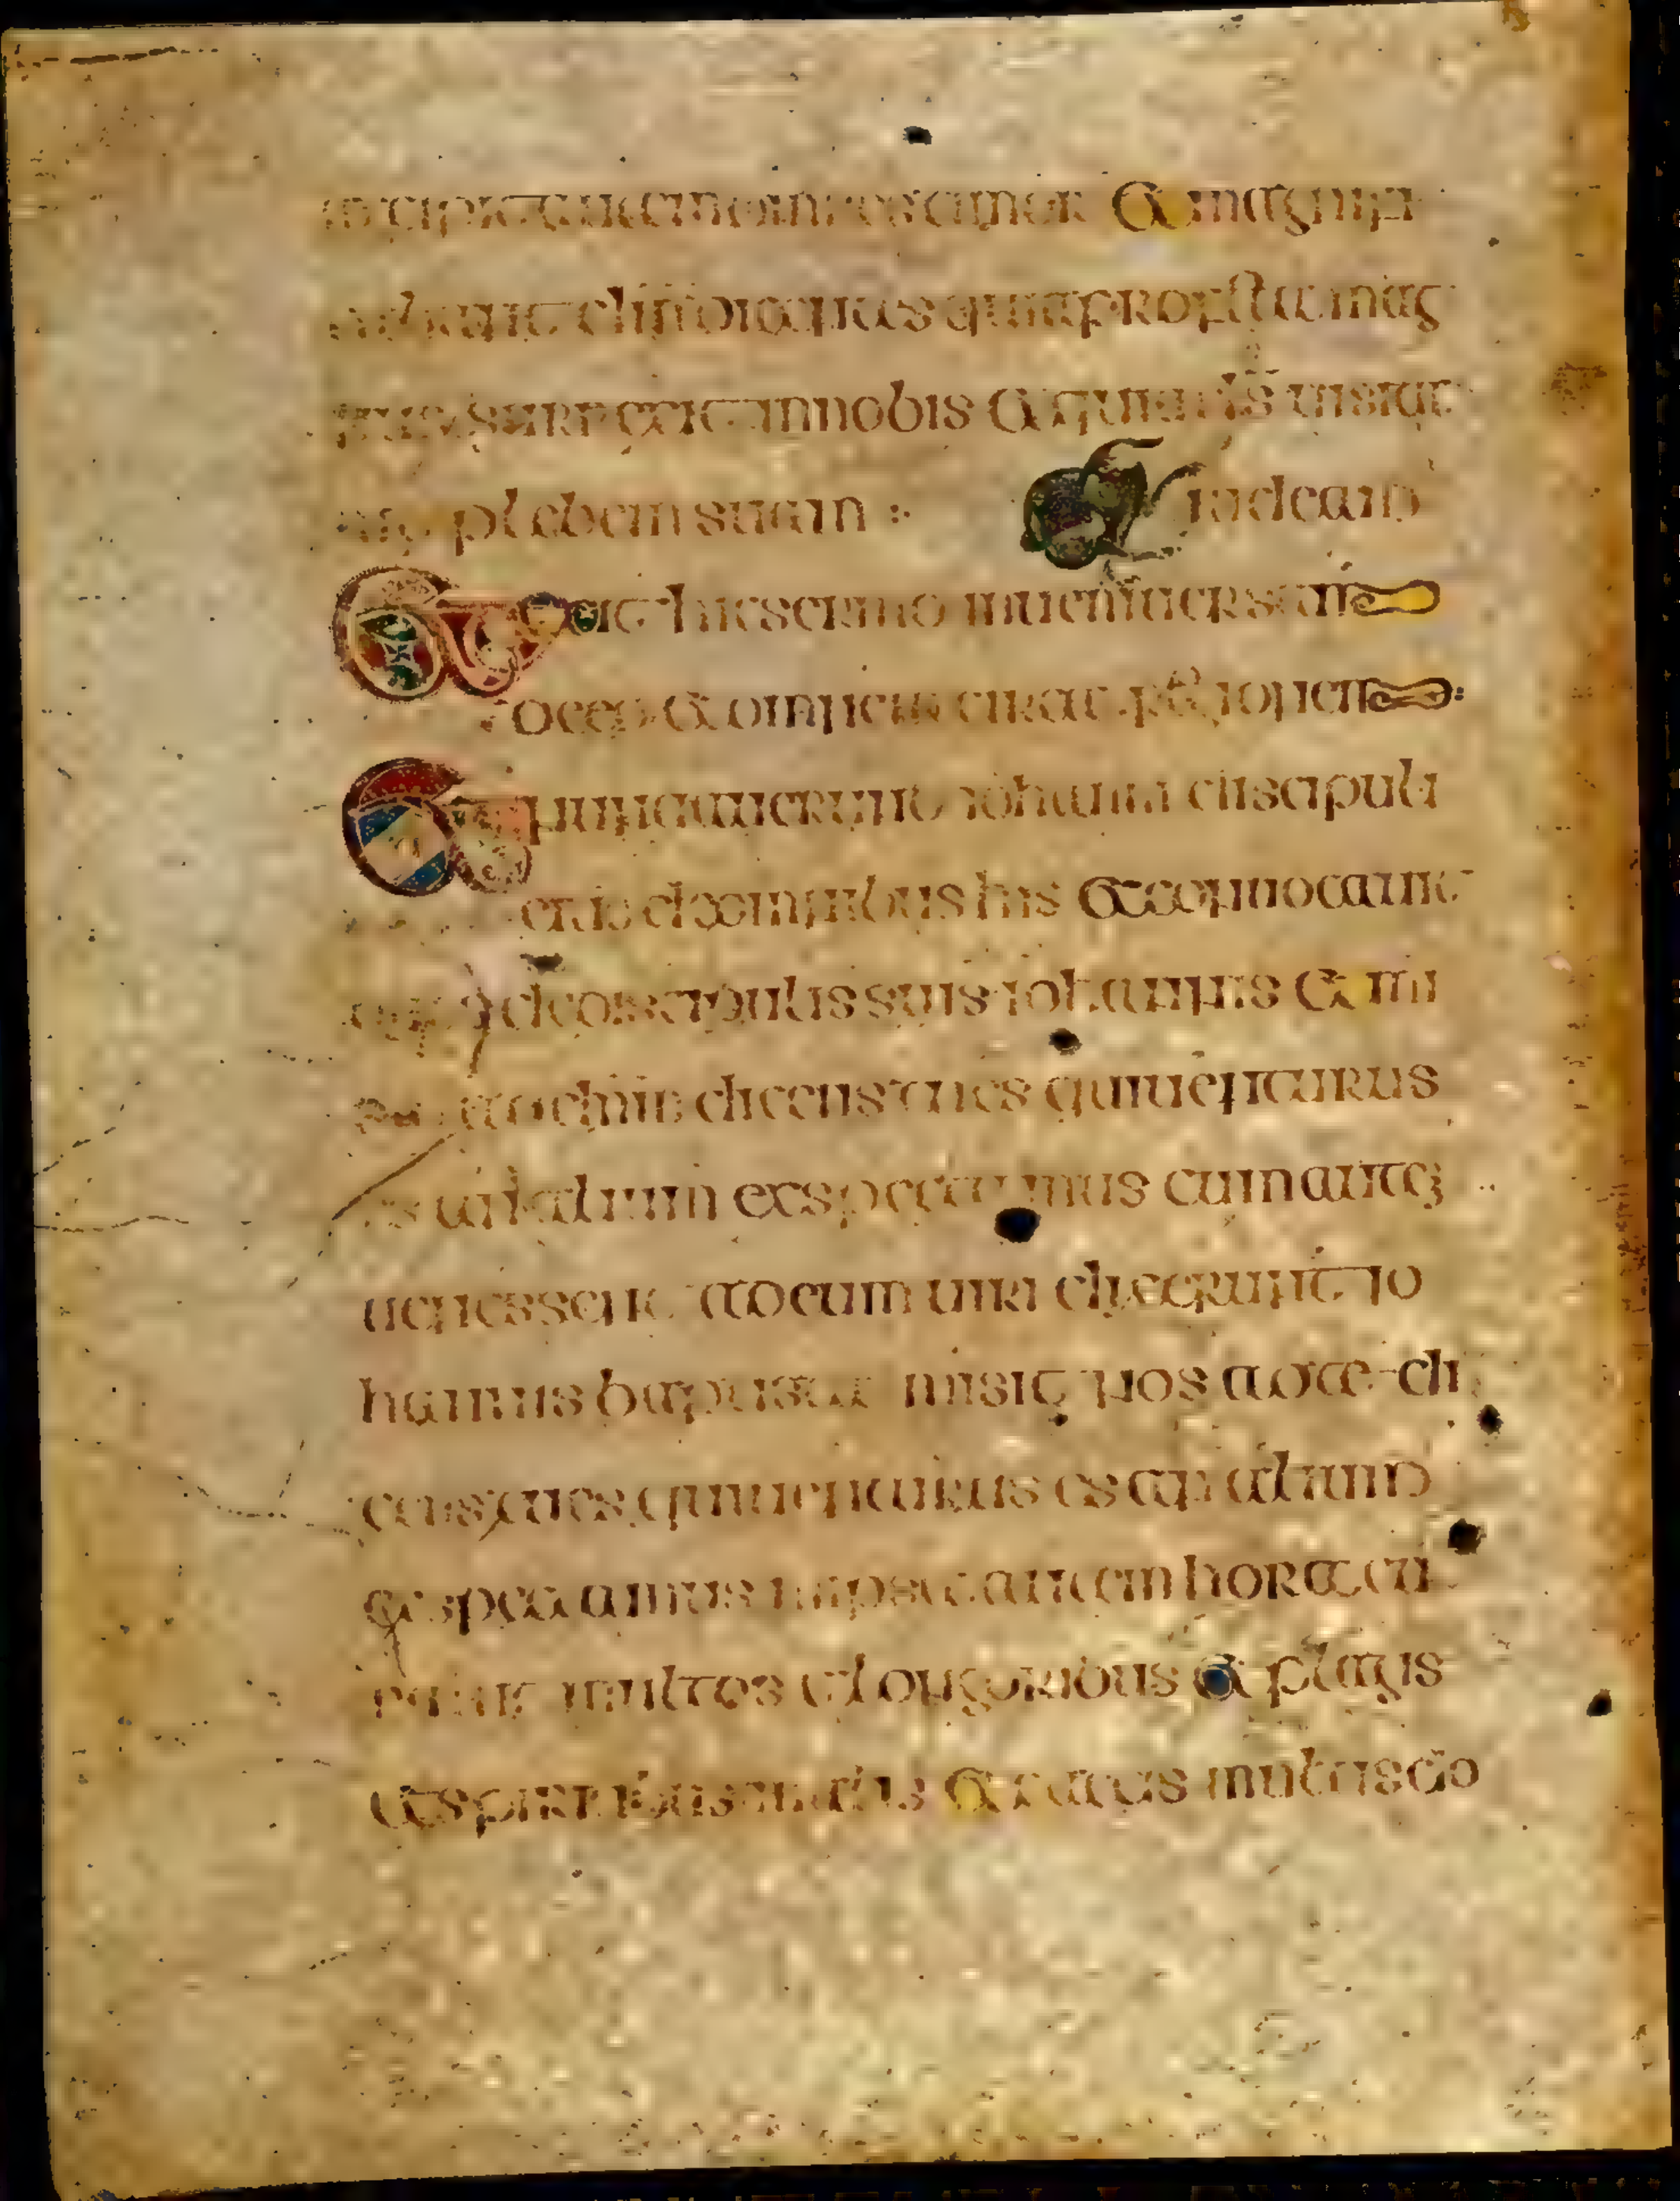 accipit autem omnes timor & magnifi
cabant dm dicentes quia profeta mag
nus surrexit in nobis & quia ds uisitauit
plebem suam : iudeam
Et exiit hic sermo in uniuersam
de eo & omnem circa regionem
Et nuntiauerunt iohanni discipuli
eius de omnibus his & conuocauit
duos de discipulis suis iohannis & mi
sit ad dnm dicens tu es qui uenturus
es an alium exspectamus cum autem
uenissent ad eum uiri dixerunt io
hannis baptista misit nos ad te di
cens tu es qui uenturus es an alium
exspectamus in ipsa autem hora cu
rauit multos a langoribus & plagis
& spiritibus malis & caecis multis do